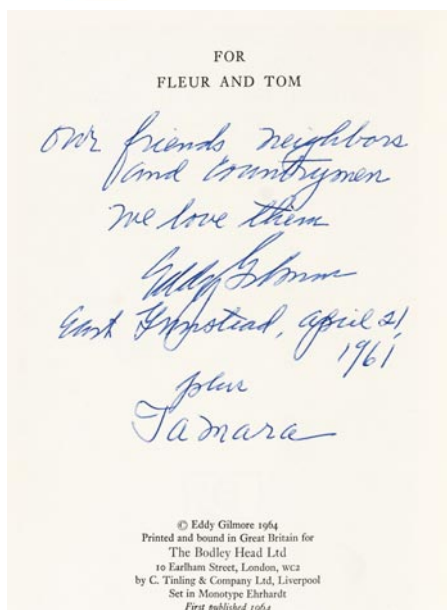 FOR
FLEUR AND TOM
Our friends neighbors
and countrymen
We love them
Eddy Gilmore
East Grinstead, april 21,
1961
plus
Tamara
© Eddy Gilmore 1964
Printed and bound in Great Britain for
The Bodley Head Ltd
10 Earlham Street, London, WC2
by C. Tinling & Company Ltd, Liverpool
Set in Monotype Ehrhardt
First published 1964